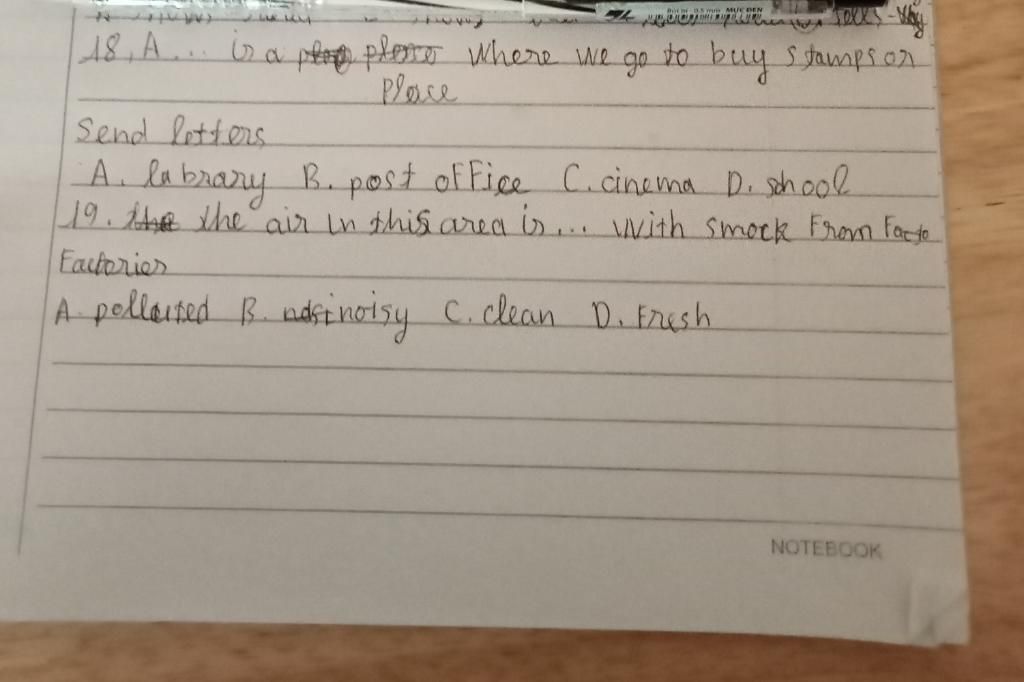 talks - Way
18. A... is a place where we go to buy stamps or
Place
Send letters
A. labrary B. post office C. cinema D. school
19. the the air in this area is... with smock From Facto
Factories
A. polluted B. noisy C. clean D. Fresh
NOTEBOOK